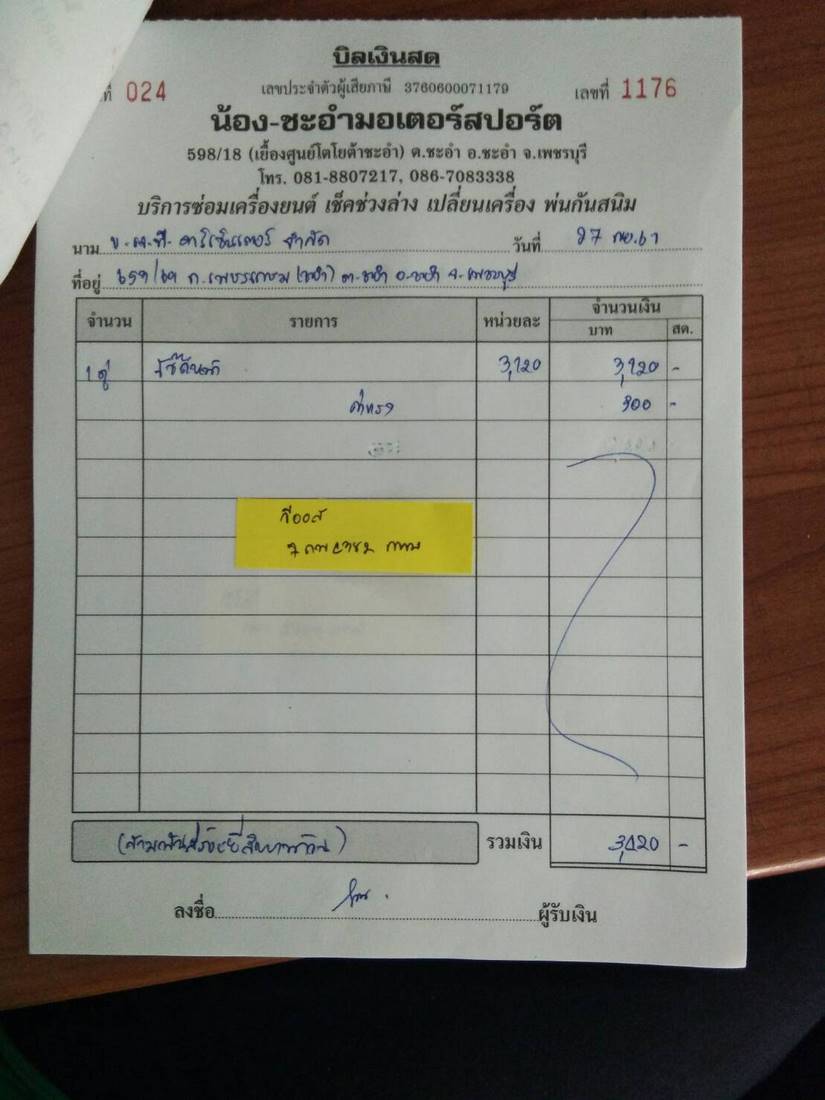 บิลเงินสด
ที่ 024 เลขประจำตัวผู้เสียภาษี 3760600071179 เลขที่ 1176
น้อง-ชะอำมอเตอร์สปอร์ต
598/18 (เยื้องศูนย์โตโยต้าชะอำ) ต.ชะอำ อ.ชะอำ จ.เพชรบุรี
โทร. 081-8807217, 086-7083338
บริการซ่อมเครื่องยนต์ เช็คช่วงล่าง เปลี่ยนเครื่อง พ่นกันสนิม
นาม จำกัด วันที่ 27 กย.61
ที่อยู่ 659/69 ถ.เพชรเกษม (ชะอำ) ต.ชะอำ อ.ชะอำ จ.เพชรบุรี
จำนวน รายการ หน่วยละ จำนวนเงิน
บาท สต.
1 คู่ 3,120 3,120 -
ค่าแรง 300 -
รวมเงิน 3,420 -
ลงชื่อ ผู้รับเงิน